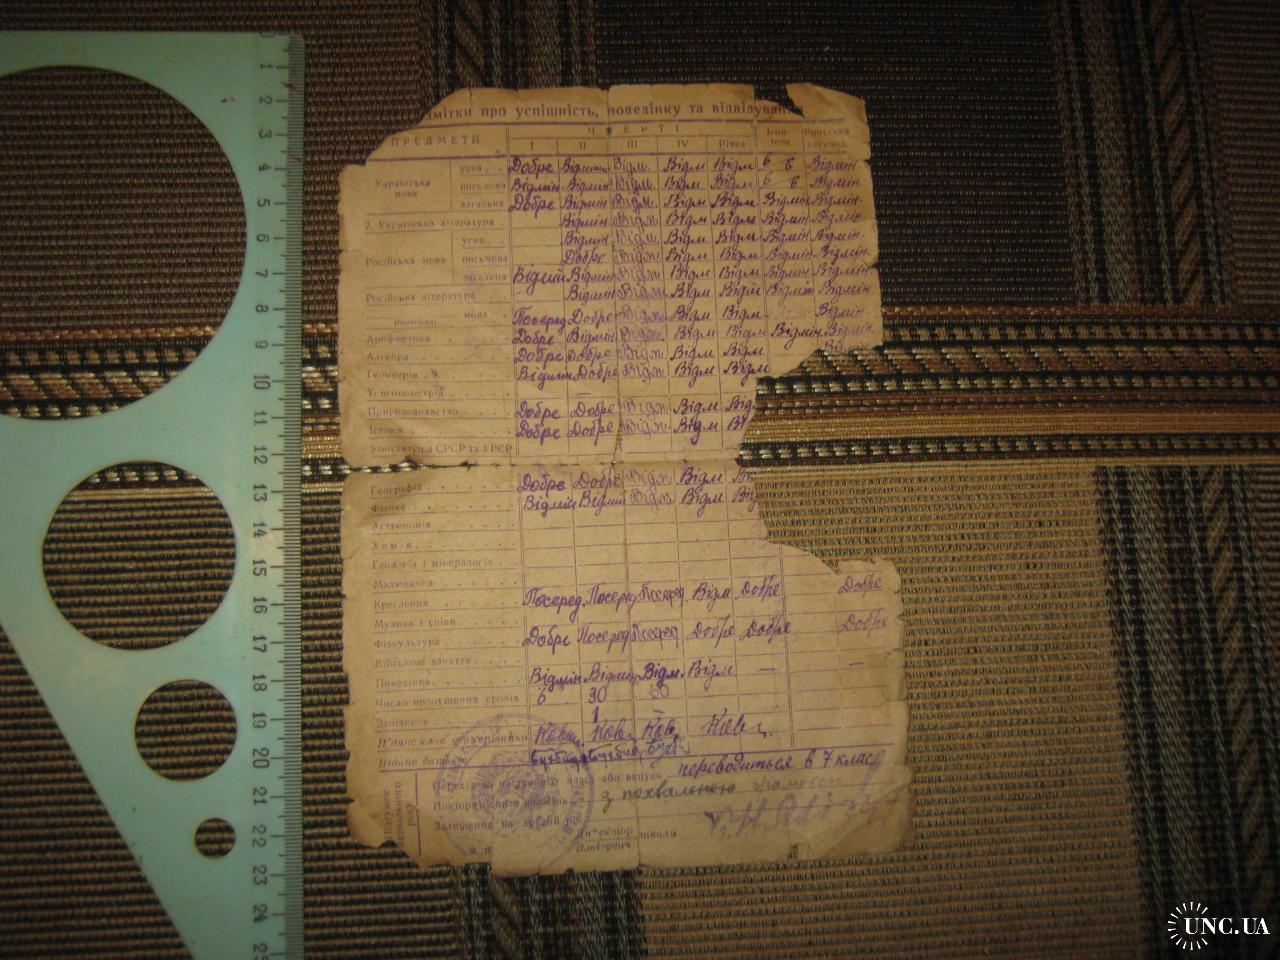 мітки про успішність, поведінку та відвідування
ПРЕДМЕТИ
ЧВЕРТІ
I II III IV Річна
Українська мова
усна Добре Відмін Відм. Відм Відм 6 в Відмін
письмова Відмін Відмін Відм. Відм Відм 6 в Відмін
загальна Добре Відмін Відм. Відм Відм Відмін Відмін.
2. Українська література Відмін Відм. Відм Відм Відмін Відмін
Російська мова
усна Відмін Відм. Відм Відм Відмін Відмін.
письмова Добре Відм. Відм Відм Відмін Відмін.
загальна Відмін Відмін Відм. Відм Відм Відмін Відмін
Російська література Відмін Відм. Відм Відм Відмін Відмін
мова Посеред Добре Відм. Відм Відм Відмін
Арифметика Добре Відмін Відм. Відм Відм Відмін Відмін.
Алгебра Добре Добре Відм. Відм Відм
Геометрія Відмін Добре Відм. Відм Відм
Тригонометрія
Природознавство Добре Добре Відм. Відм Від
Історія Добре Добре Відм. Відм Ві
Конституція СРСР та УРСР
Географія Добре Добре Відм. Відм Ві
Фізика Відмін Відмін Відм. Відм Від
Астрономія
Хемія
Геологія і мінералогія
Малювання
Креслення Посеред. Посеред Посеред. Відм Добре Добре
Музика і співи
Фізкультура Добре Посеред Посеред Добре Добре Добре
Військові заняття
Поведінка Відмін Відмін Відм. Відм — —
Число пропущених уроків 6 30 30
Запізнень 1
Підпис клас. керівника
Підпис батьків
Підсумок навчального року
Перехід до наступного класу або випуск переводиться в 7 клас
з похвальною грамотою
Залишення на другий рік
Директор школи
0 1 2 3 4 5 6 7 8 9 10 11 12 13 14 15 16 17 18 19 20 21 22 23 24 25
UNC.UA